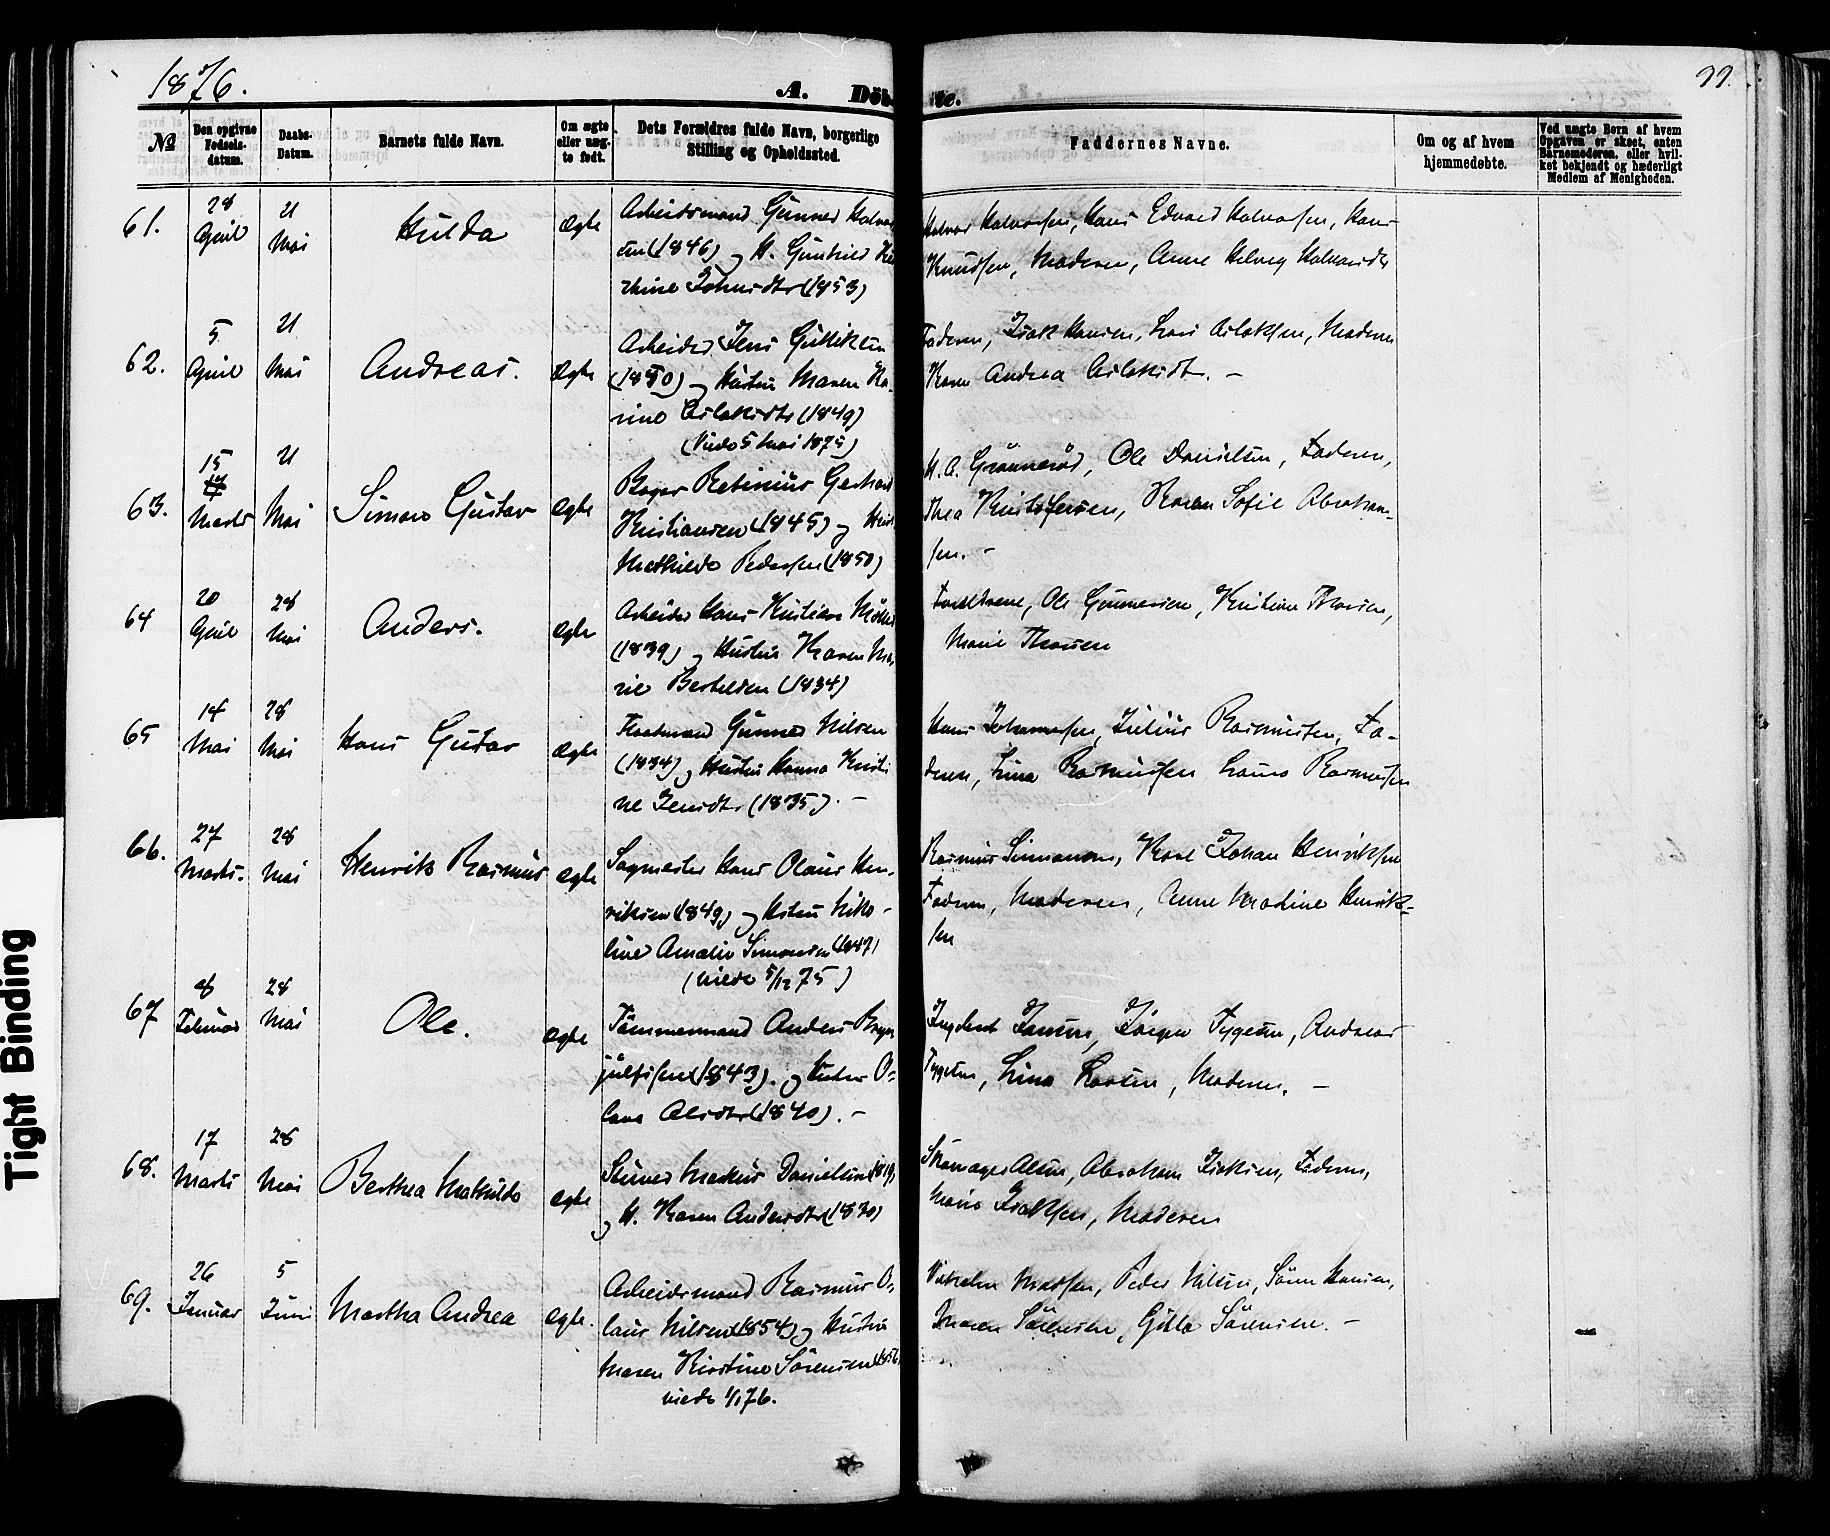 1876.
A. Döb
te.
99.
№
Den opgivne Fødsels-datum.
Daabs-Datum.
Barnets fulde Navn.
Om ægte eller uæg-te født.
Dets Forældres fulde Navn, borgerlige Stilling og Opholdssted.
Faddernes Navne.
Om og af hvem hjemmedøbte.
Ved uægte Børn af hvem Opgaven er skeet, enten Barnemoderen, eller hvil-ket bekjendt og hæderligt Medlem af Menigheden.
61.
28 April
21 Mai
Hulda
Ægte
Arbeidsmand Gunner Halvor
sen (1846) og H. Gunhild
thine Johnsdtr (1853)
Halvor Halvorsen, Hans Edvard Halvorsen, Hans
Knudsen, Moderen, Anne Helvig Halvorsdtr
62.
5 April
21 Mai
Andreas.
Ægte
Arbeider Jens Gulliksen
(1850) og Hustru Maren Ka-
rine Aslaksdtr (1849)
(Viede 5 Mai 1875)
Faderen, Isak Hansen, Lars Aslaksen, Moderen
Karen Andrea Aslaksdt. –
63.
15 Marts
21 Mai
Simon Gustav
Ægte
Bager Retinius Gerhard
Kristiansen (1845) og
Mathilde Pedersen (1850)
H. A. Grønnerød, Ole Danielsen, Faderen,
Thea Kristofersen, Karen Sofie Abraham-
sen. –
64
20 April
28 Mai
Anders.
Ægte
Arbeider Hans Kristian Møller
(1839) og Hustru Karen Ma-
rie Bertelsen (1834)
Forældrene, Ole Gunnersen, Kristian Thorsen,
Marie Thorsen
65
14 Mai
28 Mai
Hans Gustav
Ægte
Flodmand Gunner Nilsen
(1834) og Hustru Hanna Kristi
ne Jensdtr. (1835). –
Hans Johannesen, Julius Rasmussen, Fa-
deren, Lina Rasmussen Laura Rasmussen
66.
27 Marts.
28 Mai
Henrik Rasmus
Ægte
Sagmester Hans Olaus Hen-
riksen (1849) og Hstru Niko-
line Amalie Simonsen (1847)
(viede 5/12 75)
Rasmus Simonsen, Karl Johan Henriksen
Faderen, Moderen, Anne Mathine Henrik-
sen
67
8 Februar
28 Mai
Ole.
Ægte
Tømmermand Anders Bryn
julfsen (1843). og Hustru O-
lava Olsdtr (1840). –
Ingebret Jansen, Jørgen Tygesen, Andreas
Tygesen, Lina Larsen, Moderen. –
68.
17 Marts
28 Mai
Berthea Mathilde
Ægte
Stuer Markus Danielsen
og H. Karen Andersdtr (1830)
Skomager Olsen, Abraham Isaksen, Faderen,
Maria Isaksen, Moderen
69.
26 Januar
5 Juni
Martha Andrea
Ægte.
Arbeidsmand Rasmus O-
laus Nilsen (1854) og Hustru
Maren Kirstine Sørensen (1856)
viede 1/1 76.
Vilhelm Madsen, Peder Nilsen, Søren Hansen,
Maren Sørensen, Gilla Sørensen. –
Tight Binding